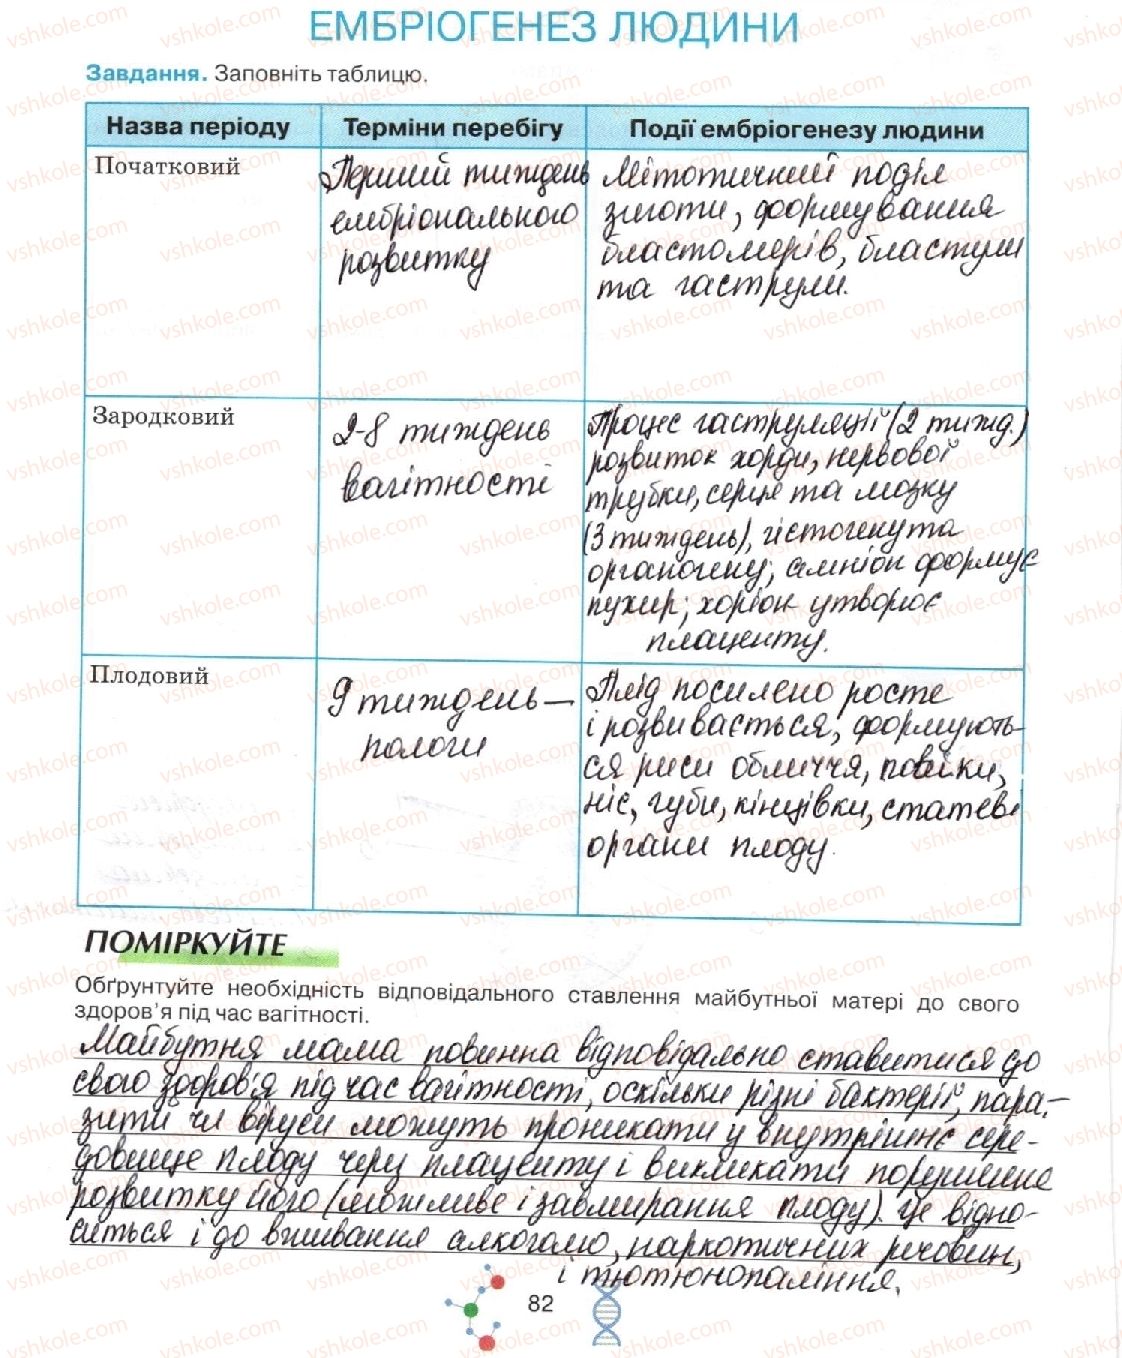 ЕМБРІОГЕНЕЗ ЛЮДИНИ
Завдання. Заповніть таблицю.
Назва періоду
Терміни перебігу
Події ембріогенезу людини
Початковий
Перший тиждень
ембріонального
розвитку
Мітотичний поділ
зиготи, формування
бластомерів, бластули
та гаструли.
Зародковий
2-8 тиждень
вагітності
Процес гаструляції (2 тижд.)
розвиток хорди, нервової
трубки, серце та мозку
(3 тиждень), гістогену та
органогену; амніон формує
пухир; хоріон утворює
плаценту.
Плодовий
9 тиждень —
пологи
Плід посилено росте
і розвивається, формують-
ся риси обличчя, повіки,
ніс, губи, кінцівки, статеві
органи плоду.
ПОМІРКУЙТЕ
Обґрунтуйте необхідність відповідального ставлення майбутньої матері до свого
здоров'я під час вагітності.
Майбутня мама повинна відповідально ставитися до
свого здоров'я під час вагітності, оскільки різні бактерії, пара-
зити чи віруси можуть проникати у внутрішнє сере-
довище плоду через плаценту і викликати порушення
розвитку його (можливе і завмирання плоду). Це відно-
ситься і до вживання алкоголю, наркотичних речовин,
і тютюнопаління.
82